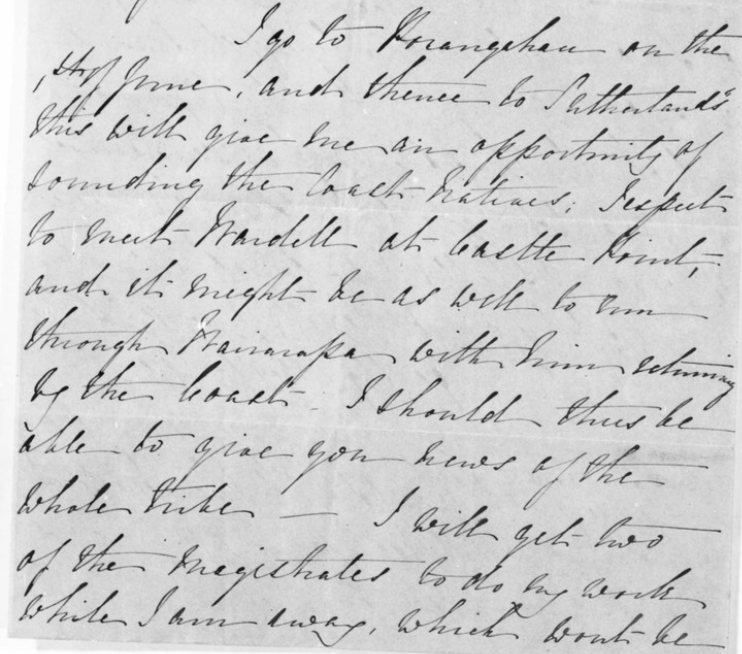 I go to Porangahau on the
1st of June, and thence to Sutherlands
this will give me an opportunity of
sounding the Coast Natives; I expect
to meet Wardell at Castle Point,
and it might be as well to run
through Wairarapa with him returning
by the Coast. I should thus be
able to give you news of the
whole tribe — I will get two
of the Magistrates to do my work
while I am away, which wont be